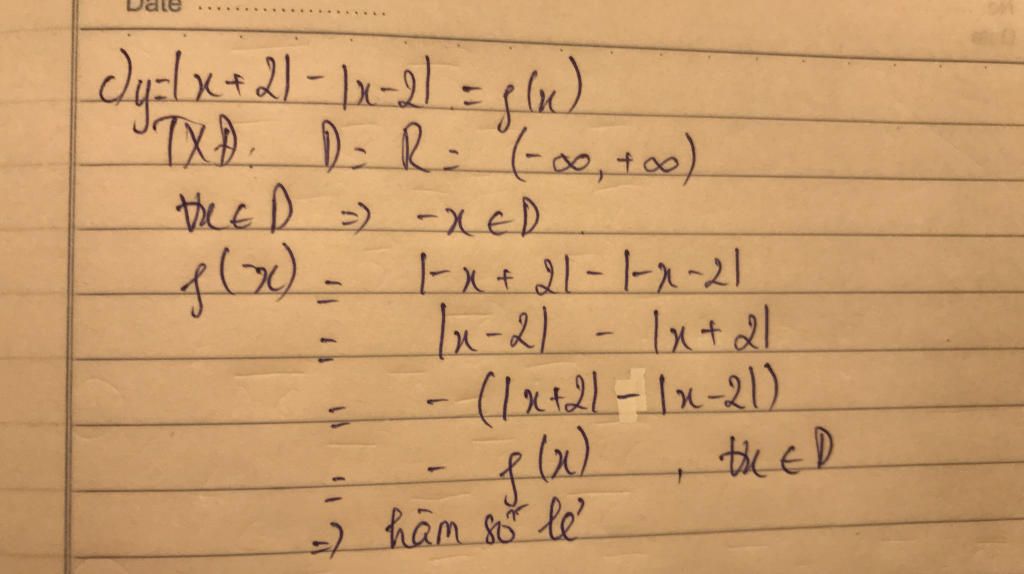 Date ....................
c) y=|x+2| - |x-2| = f(x)
TXĐ: D = R = (-∞, +∞)
∀x ∈ D => -x ∈ D
f(-x) = |-x+2| - |-x-2|
= |x-2| - |x+2|
= - (|x+2| - |x-2|)
= - f(x) , ∀x ∈ D
=> hàm số lẻ